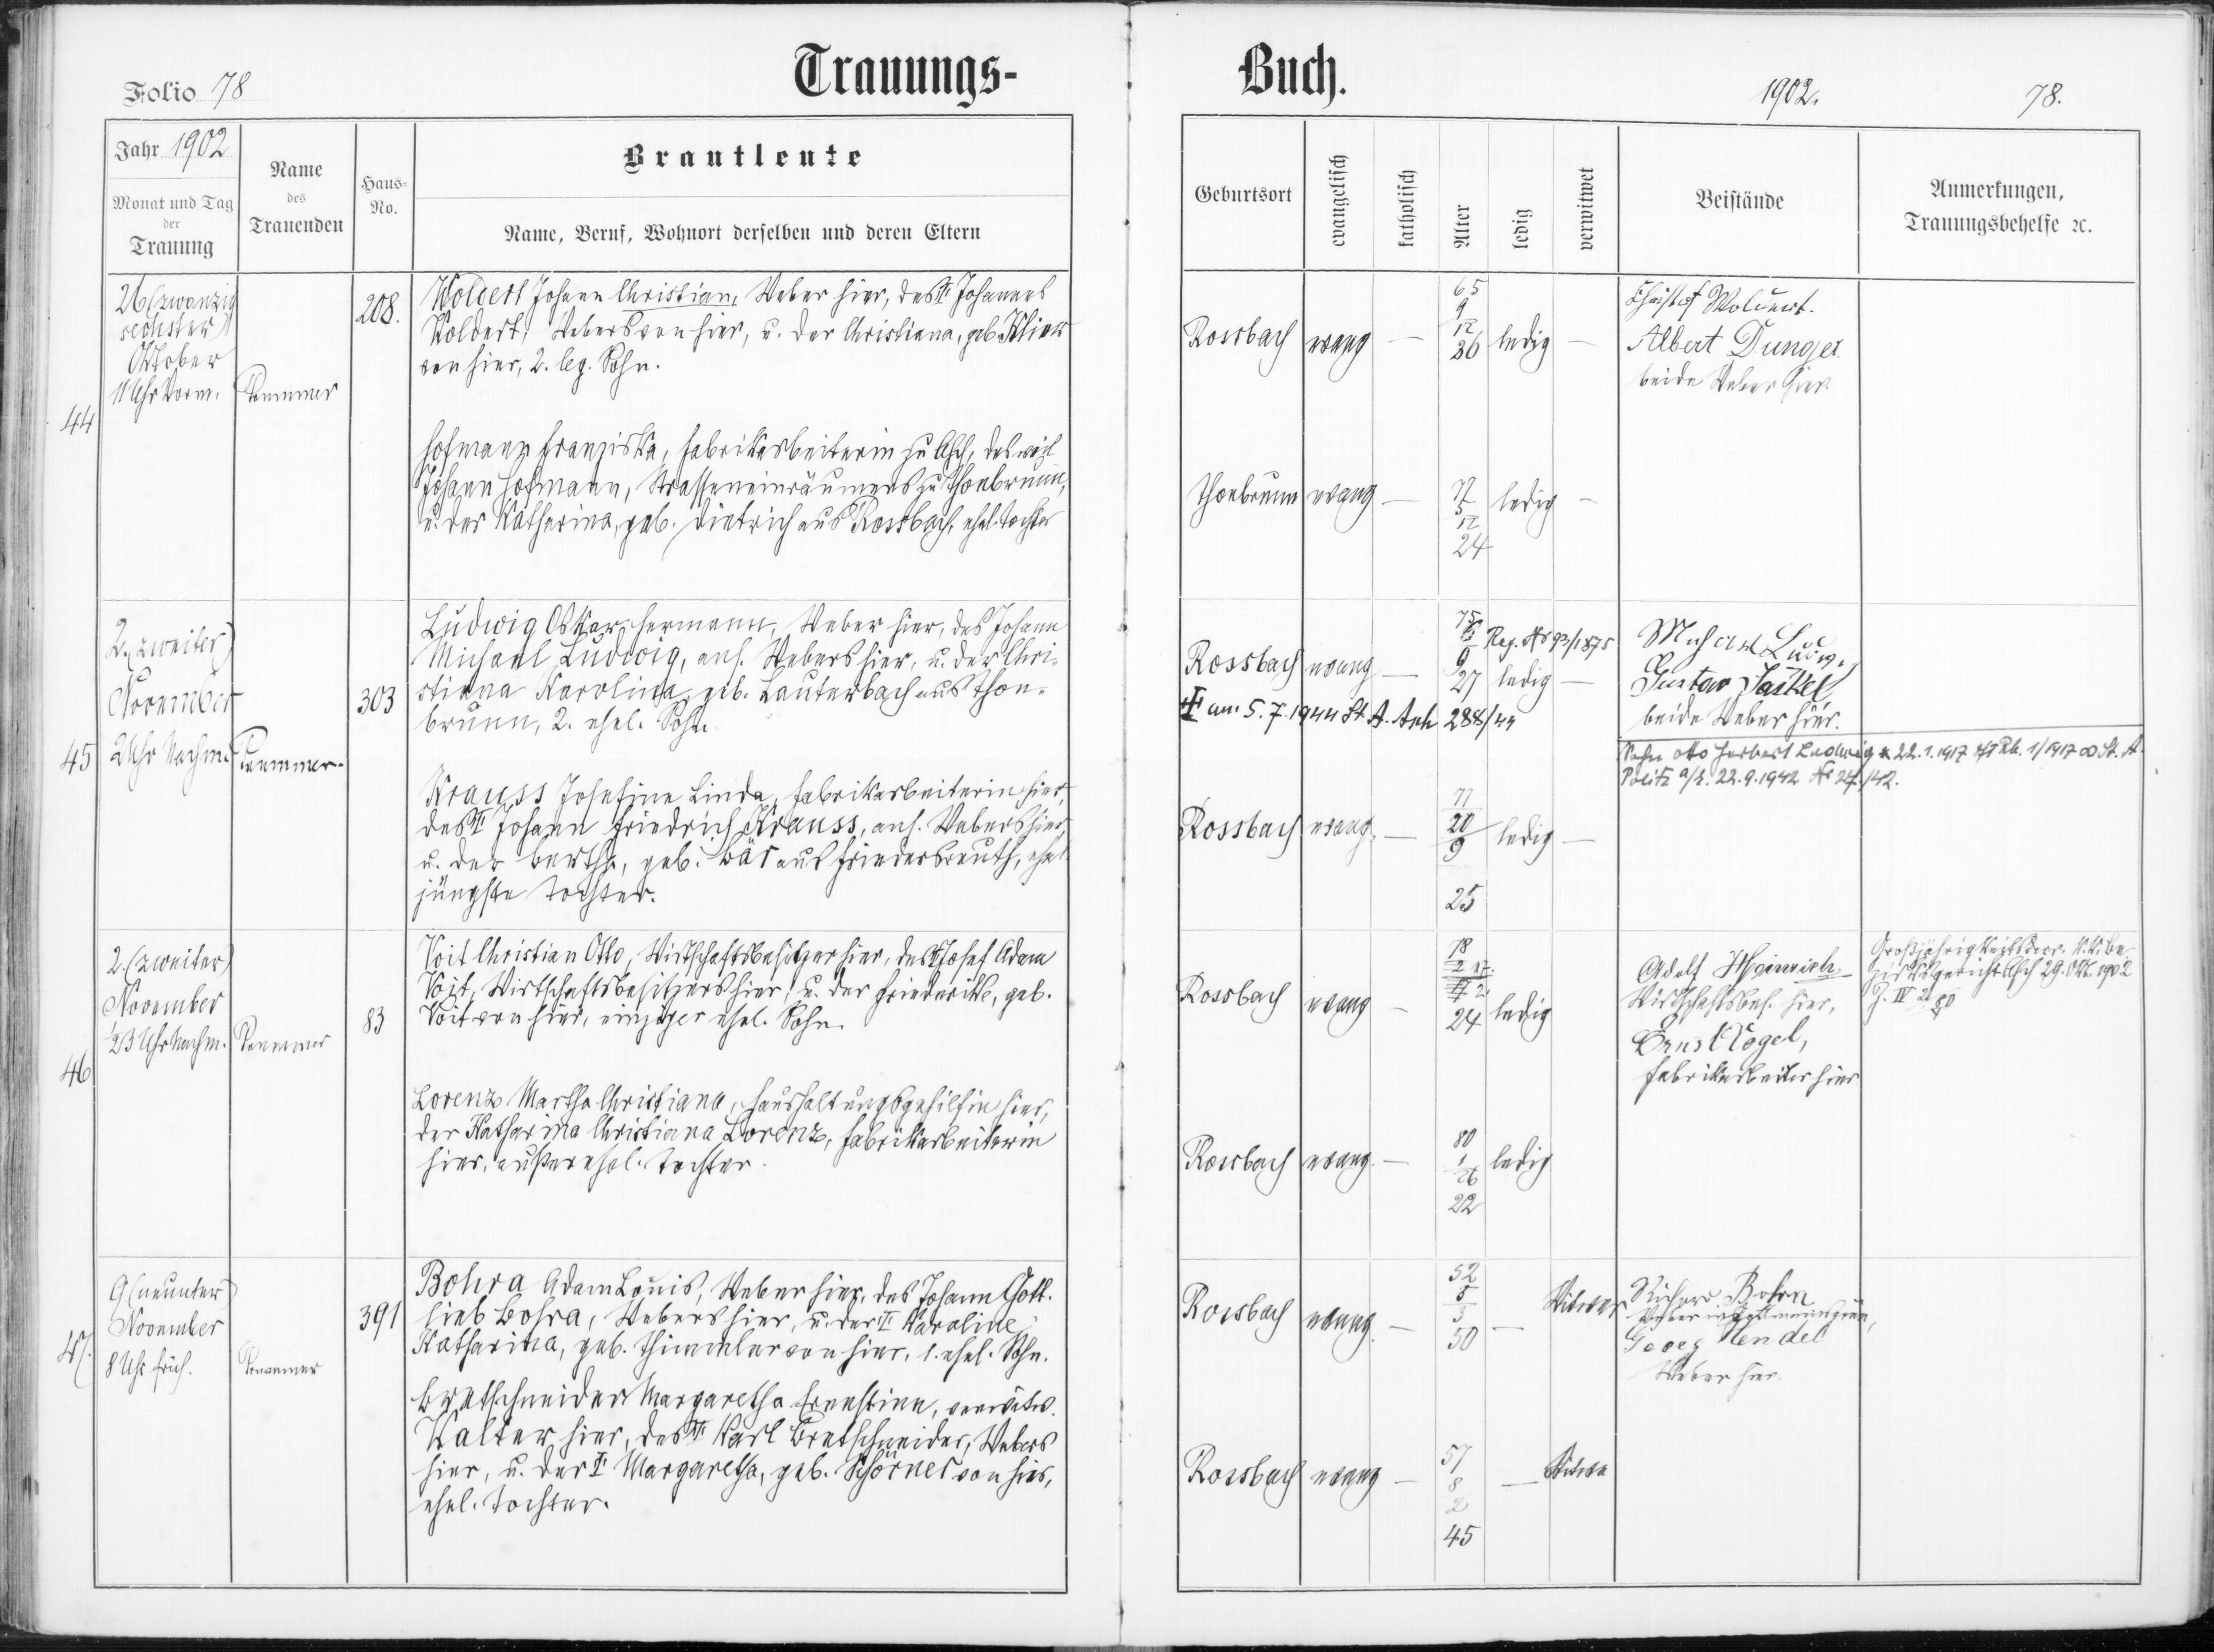 Folio 78
Trauungs-
Jahr 1902
Monat und Tag
der
Trauung
Name
des
Trauenden
Haus-
No.
Brautleute
Name, Beruf, Wohnort derselben und deren Eltern
44
26 (zwanzig
sechster)
Oktober
11 Uhr Vorm.
208.
Woldert Johann Christian, Weber hier, des † Johannes
Woldert, Webers von hier, u. der Christiana, geb. Klier
von hier, 2. leg. Sohn.
Hofmann Franziska, Fabrikarbeiterin zu Asch, des weil
Johann Hofmann, Strasseneinräumers zu Thonbrunn,
u. der Katharina, geb. Dietrich aus Rossbach, ehel. Tochter
45
2. (zweiter)
November
2 Uhr Nachm.
303
Ludwig Oskar Hermann, Weber hier, des Johann
Michael Ludwig, ans. Webers hier, u. der Chri-
stiana Karolina, geb. Lauterbach aus Thon-
brunn, 2. ehel. Sohn
Krauss Josefine Linda, Fabrikarbeiterin hier,
des † Johann Friedrich Krauss, ans. Webers hier,
u. der Bertha, geb. Bär aus Friedersreuth, ehel.
jüngste Tochter.
46
2. (zweiter)
November
1/2 3 Uhr Nachm.
83
Voit Christian Otto, Wirtschaftsbesitzer hier, des † Josef Adam
Voit, Wirtschaftsbesitzers hier, u. der Friederike, geb.
Voit von hier, einziger ehel. Sohn.
Lorenz Martha Christiana, Haushaltungsgehilfin hier,
der Katharina Christiana Lorenz, Fabrikarbeiterin
hier, außerehel. Tochter.
47.
9 (neunter)
November
8 Uhr früh.
391
Bohra Adam Louis, Weber hier, des Johann Gott-
lieb Bohra, Webers hier, u. der † Karoline
Katharina, geb. Thümmler von hier, 1. ehel. Sohn.
Bretschneider Margaretha Ernestine, verwitw.
Walter hier, des † Karl Bretschneider, Webers
hier, u. der † Margaretha, geb. Schörner von hier,
ehel. Tochter.
Buch.
1902.
78.
Geburtsort
evangelisch
katholisch
Alter
ledig
verwitwet
Beistände
Anmerkungen,
Trauungsbehelfe ꝛc.
Rossbach evang — 65 9 12 36 ledig —
Christof Woldert.
Albert Dunger
beide Weber hier.
Thonbrunn evang — 77 5 12 24 ledig —
Reg. No 93/1875
Rossbach evang — 75 9 27 ledig —
am 5.7.1944 St. A. Asch 288/44
Ludwig
Gustav Jäckel,
beide Weber hier.
Sohn Otto Herbert Ludwig * 22.1.1917 1/1917 ∞ St. A.
Politz a/E. 22.9.1942 No 27/42.
Rossbach evang. — 77 20 9 25 ledig —
Rossbach evang — 78 24 ledig
Adolf Heinrich
Wirtschaftsbes. hier,
Ernst Vogel,
Fabrikarbeiter hier
Großjährigkeitsdecr. k.k. Be-
zirksgericht Asch 29. Okt. 1902
Rossbach evang. — 80 1 26 22 ledig
Rossbach evang. — 52 5 3 50 — Witwer
Richard Bohra
Georg Wendel
Weber hier.
Rossbach evang — 57 8 2 45 — Witwe